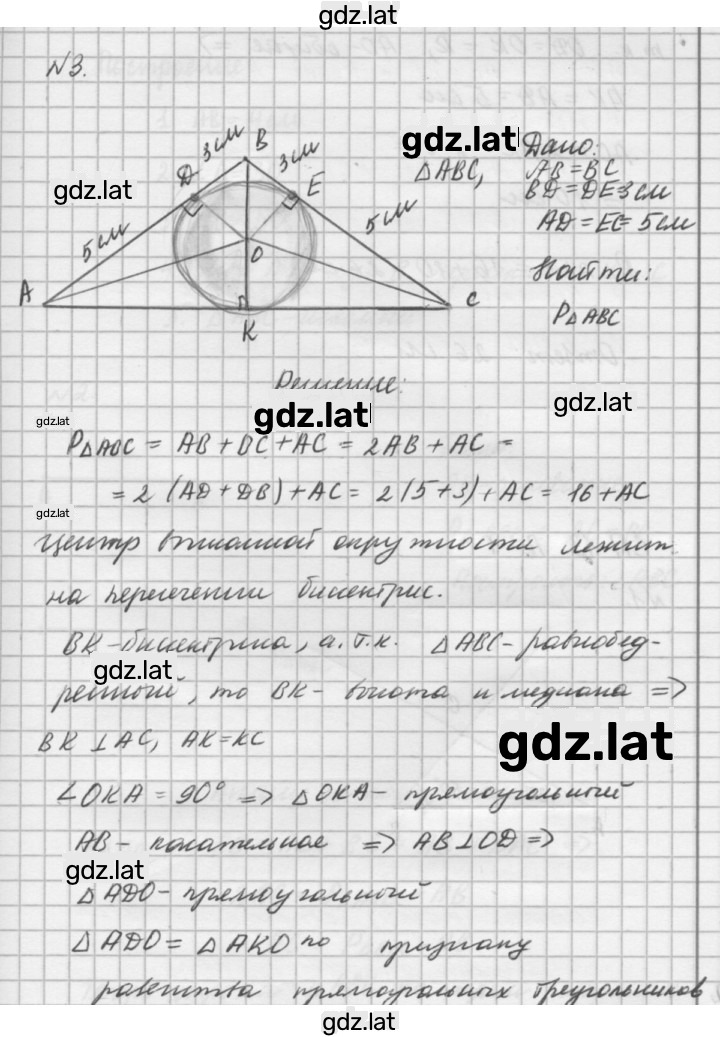 gdz.lat
№3.
3 см B 3 см
D E
5 см 5 см
O
A C
K
gdz.lat
gdz.lat
Дано:
△ABC, AB = BC
BD = DE = 3 см
AD = EC = 5 см
Найти:
P△ABC
Решение:
gdz.lat
gdz.lat
gdz.lat
P△ABC = AB + BC + AC = 2AB + AC =
= 2 (AD + DB) + AC = 2 (5+3) + AC = 16 + AC
gdz.lat
Центр вписанной окружности лежит
на пересечении биссектрис.
BK - биссектриса, а т.к. △ABC - равнобед-
gdz.lat
ренный, то BK - высота и медиана =>
BK ⊥ AC, AK = KC
gdz.lat
∠OKA = 90° => △OKA - прямоугольный
AB - касательное => AB ⊥ OD =>
gdz.lat
△ADO - прямоугольный
△ADO = △AKO по признаку
равенства прямоугольных треугольников
gdz.lat